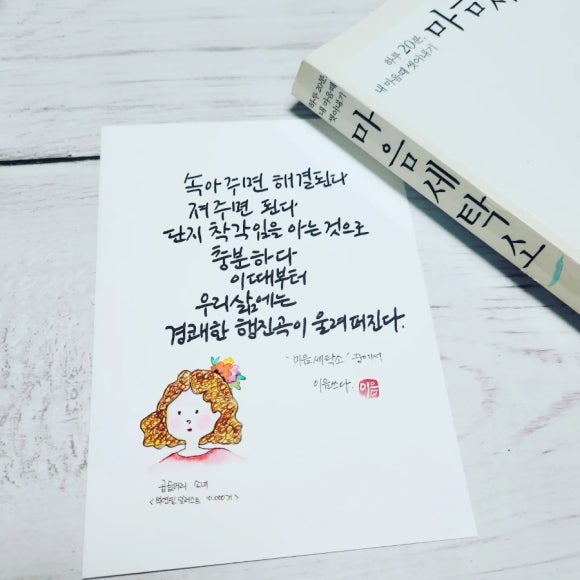 속아주면 해결된다
져주면 된다
단지 착각임을 아는것으로
충분하다
이때부터
우리삶에는
경쾌한 행진곡이 울려퍼진다.
'마음세탁소' 중에서
이음쓰다.
이음
곱슬머리 소녀
하루 20분,
내 마음때 씻어내기
마음세
하루 20분,
내 마음때 씻어내기
마음세탁소